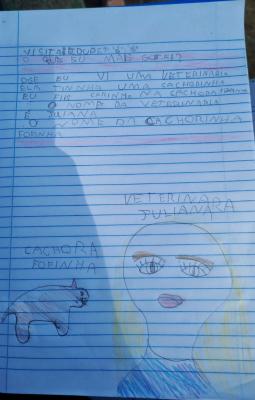 O QUE EU MAIS GOSTEI?
OGE EU VI UMA VETERINARIA
ELA TINHHA UMA CACHORINHA
EU FIS CARINHO NA CACHORA
O NOME DA VETERINARIA
E JULIANA
O NOME DA CACHORINHA
FOFINHA
VETERINARA
JULIANARA
CACHORA
FOFINHA